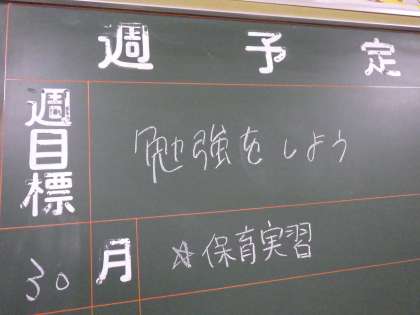 週予定
週目標
勉強をしよう
30 月 ☆保育実習